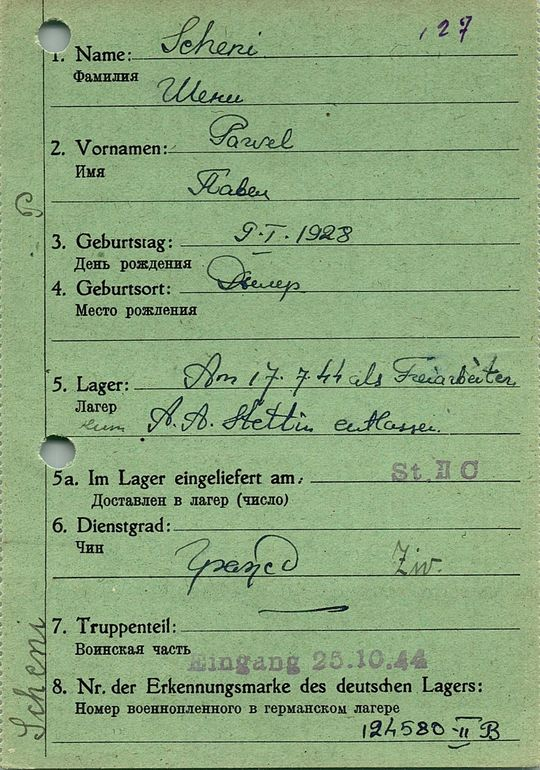 127
1. Name: Scheni
Фамилия
Шени
2. Vornamen: Pawel
Имя
Павел
3. Geburtstag: 9.I.1928
День рождения
4. Geburtsort:
Место рождения
5. Lager: Am 17.7.44 als Freiarbeiter
Лагер
A.A. Stettin entlassen.
5a. Im Lager eingeliefert am: St. II C
Доставлен в лагер (число)
6. Dienstgrad:
Чин
Ziv.
7. Truppenteil:
Воинская часть
Eingang 25.10.44
8. Nr. der Erkennungsmarke des deutschen Lagers:
Номер военнопленного в германском лагере
124580 - II B
Scheni P